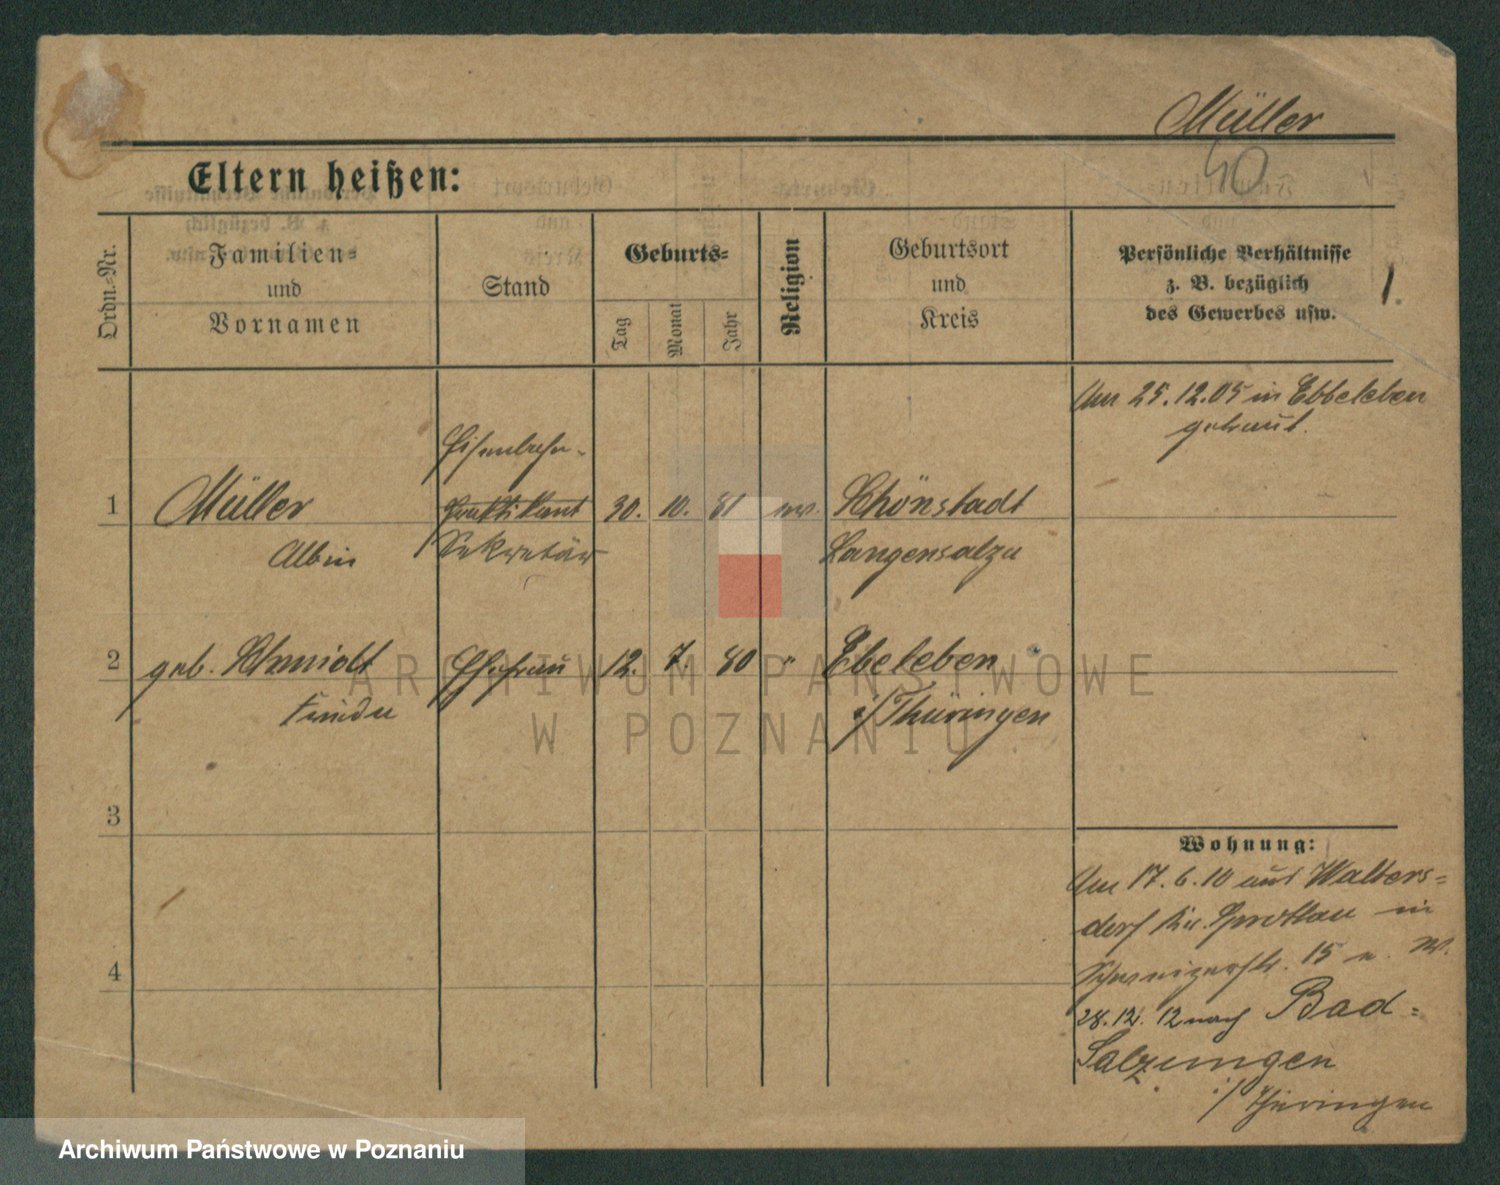 Müller
Eltern heißen:
Ordn.-Nr.
Familien-
und
Vornamen
Stand
Geburts-
Tag
Monat
Jahr
Religion
Geburtsort
und
Kreis
Persönliche Verhältnisse
z. B. bezüglich
des Gewerbes usw.
1.
Am 25.12.05 in Ebbeleben
getraut.
Eisenbahn-
1 Müller Praktikant 30. 10. 81 ev. Schönstadt
Albin Sekretär Langensalza
2 geb. Schmidt Ehefrau 12. 7. 80 " Ebeleben
i/Thüringen
3
4
Wohnung:
Am 17.6.10 aus Walters-
dorf Kr. Sprottau in
15 u. W.
28.12.12 nach Bad-
Salzungen
i/Thüringen
ARCHIWUM PAŃSTWOWE
W POZNANIU
Archiwum Państwowe w Poznaniu